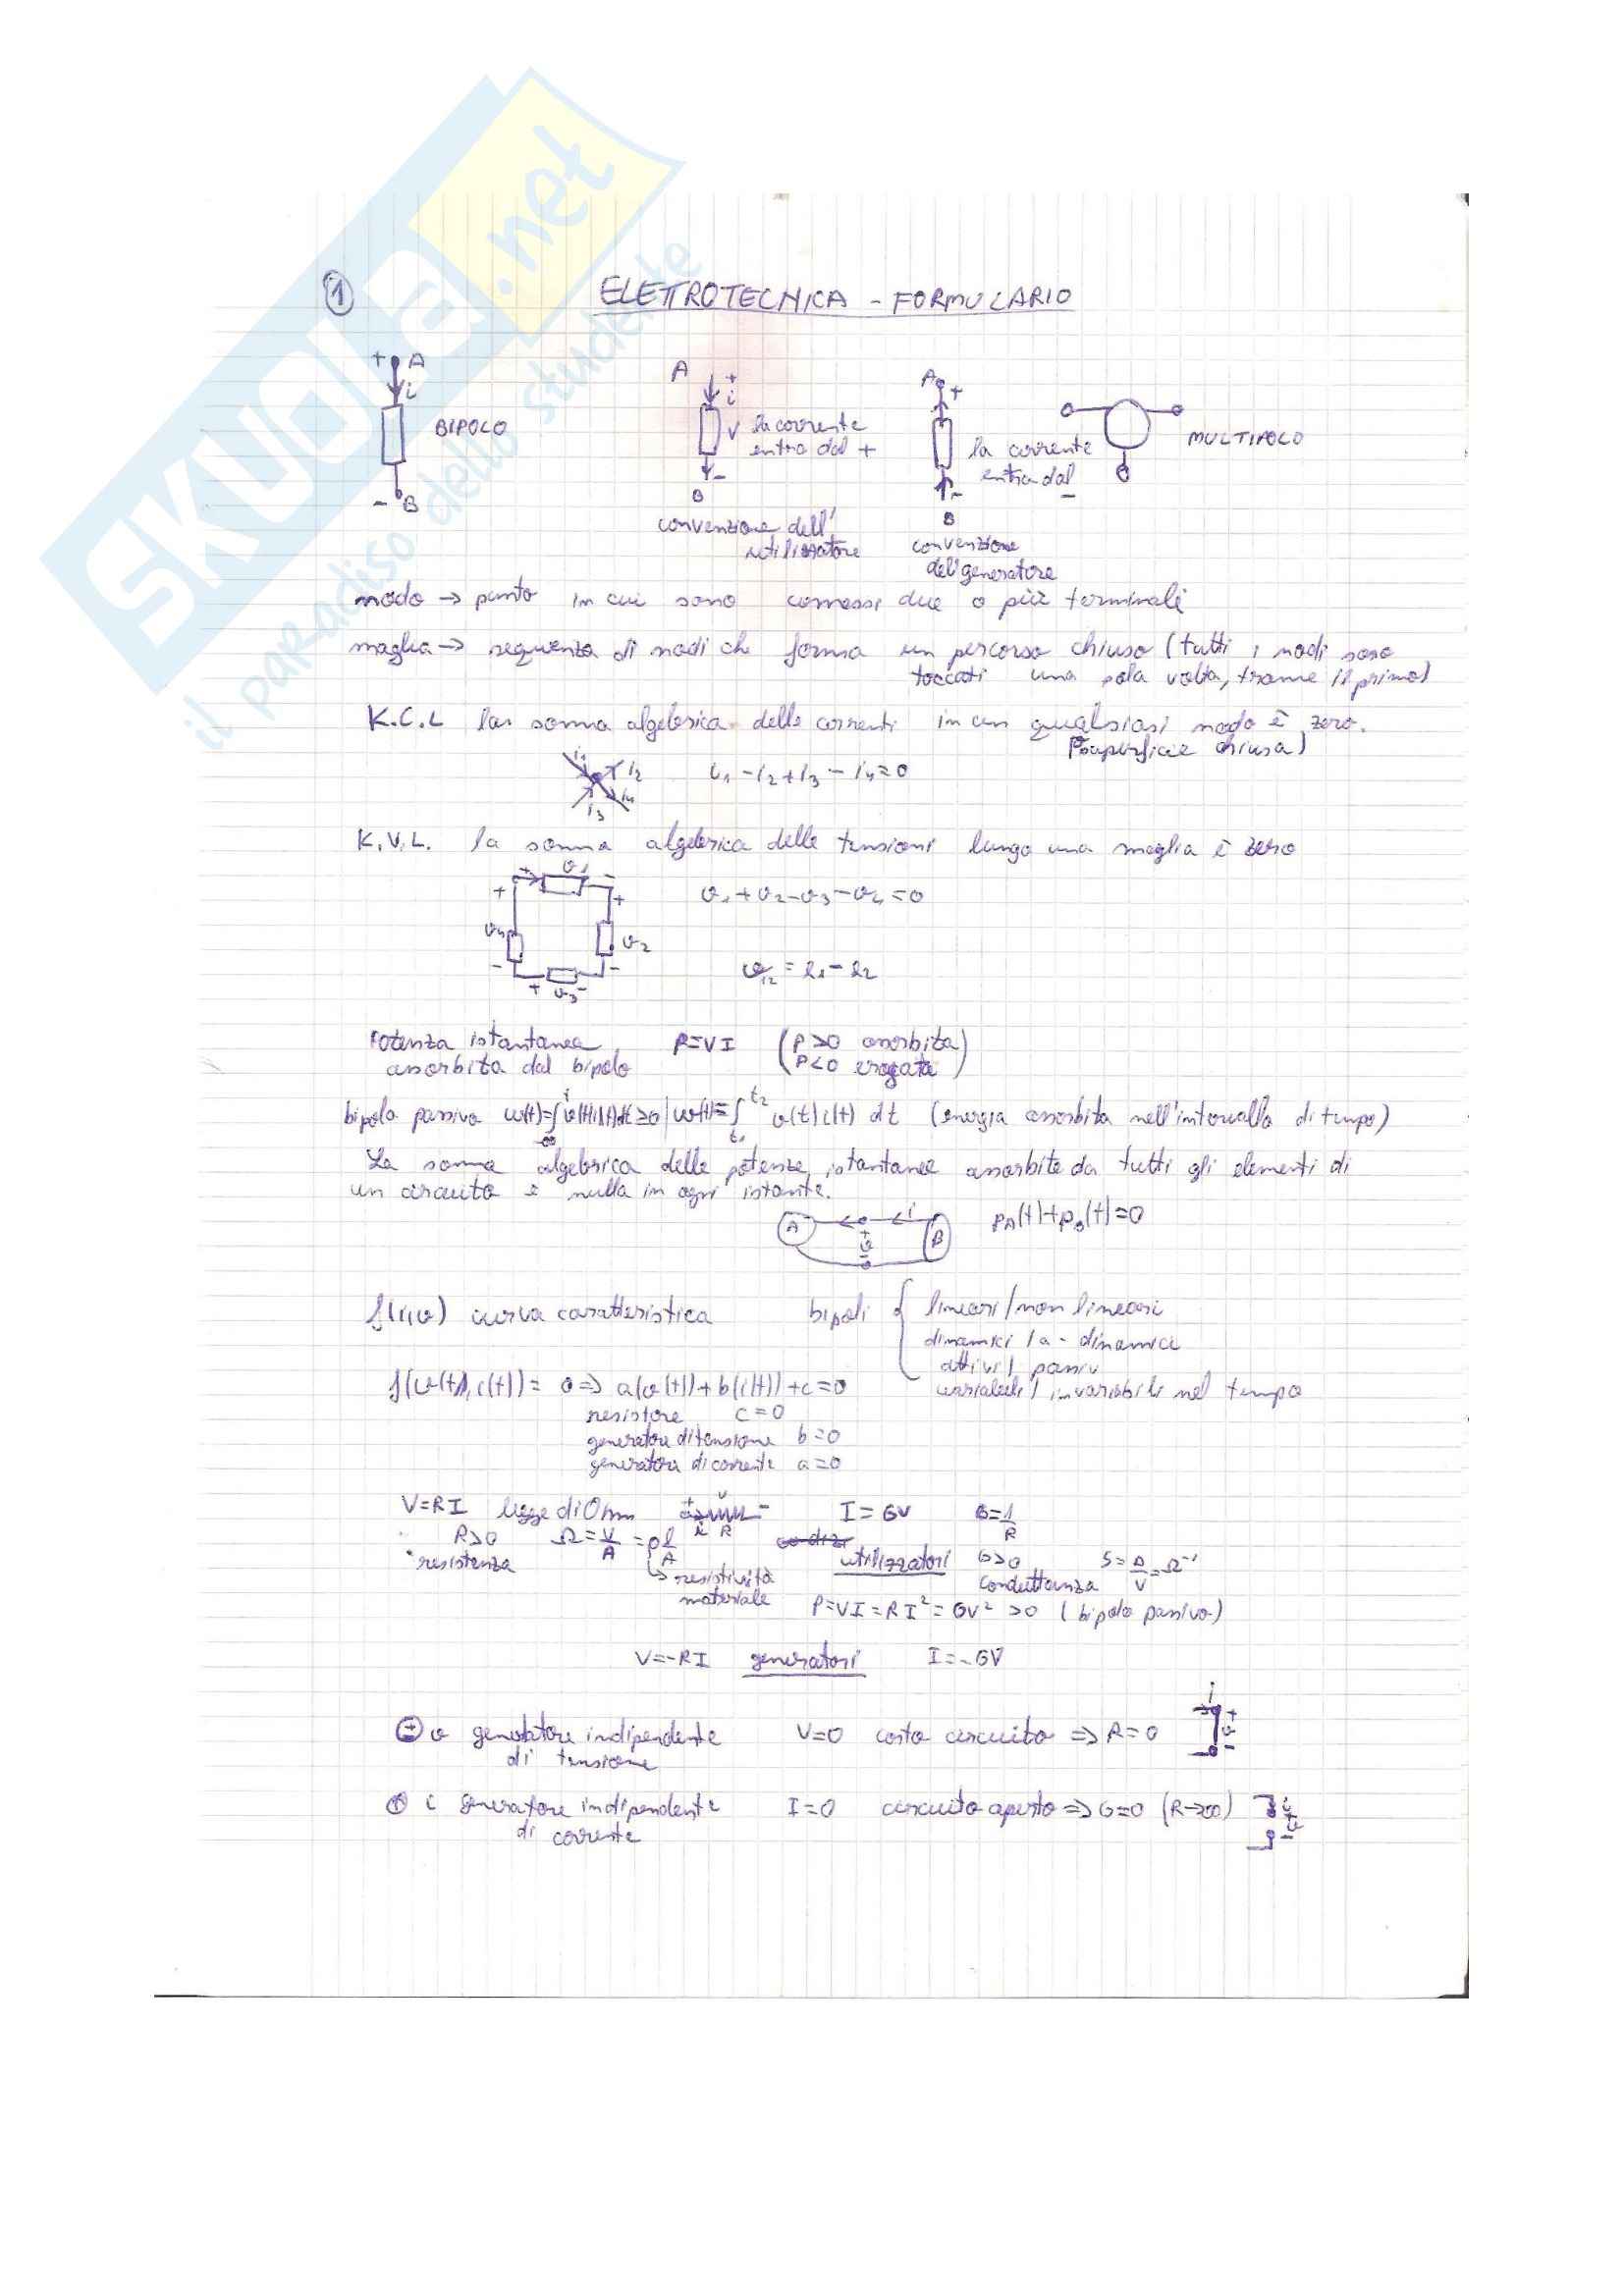 SKUOLA.net
il paradiso dello studente
1
ELETTROTECNICA - FORMULARIO
+ A
i
BIPOLO
- B
A + i
V la corrente
entra dal +
-
B
convenzione dell'
utilizzatore
A +
la corrente
entra dal -
-
B
convenzione
del generatore
MULTIPOLO
nodo → punto in cui sono connessi due o più terminali
maglia → sequenza di nodi ch forma un percorso chiuso (tutti i nodi sono
toccati una sola volta, tranne il primo)
K.C.L la somma algebrica delle correnti in un qualsiasi nodo è zero.
(superficie chiusa)
i1 i2 i3 i4
i1 - i2 + i3 - i4 = 0
K.V.L. la somma algebrica delle tensioni lungo una maglia è zero
+ v1 -
+ v2 -
+ v3 -
+ v4 -
v1 + v2 - v3 - v4 = 0
v12 = e1 - e2
Potenza istantanea P = VI (P>0 assorbita)
assorbita dal bipolo P<0 erogata
bipolo passivo w(t) = ∫ v(t) i(t) dt ≥ 0 | w(t) = ∫ t1 t2 v(t) i(t) dt (energia assorbita nell'intervallo di tempo)
La somma algebrica delle potenze istantanee assorbite da tutti gli elementi di
un circuito è nulla in ogni istante.
A i + v - B
pA(t) + pB(t) = 0
f(i,v) curva caratteristica
bipoli { lineari/non lineari
dinamici / a-dinamici
attivi / passivi
variabili / invariabili nel tempo
f(v(t), i(t)) = 0 ⇒ a(v(t)) + b(i(t)) + c = 0
resistore c = 0
generatore di tensione b = 0
generatore di corrente a = 0
V = RI legge di Ohm + v - i R I = GV G = 1/R
R>0 Ω = V/A = ρ l/A
resistenza
→ resistività
materiale
utilizzatori G>0 S = A/V = Ω⁻¹
conduttanza
P = VI = RI² = GV² > 0 (bipolo passivo)
V = -RI generatori I = -GV
v generatore indipendente V = 0 corto circuito ⇒ R = 0 i + v -
di tensione
i generatore indipendente I = 0 circuito aperto ⇒ G = 0 (R→∞) i + v -
di corrente